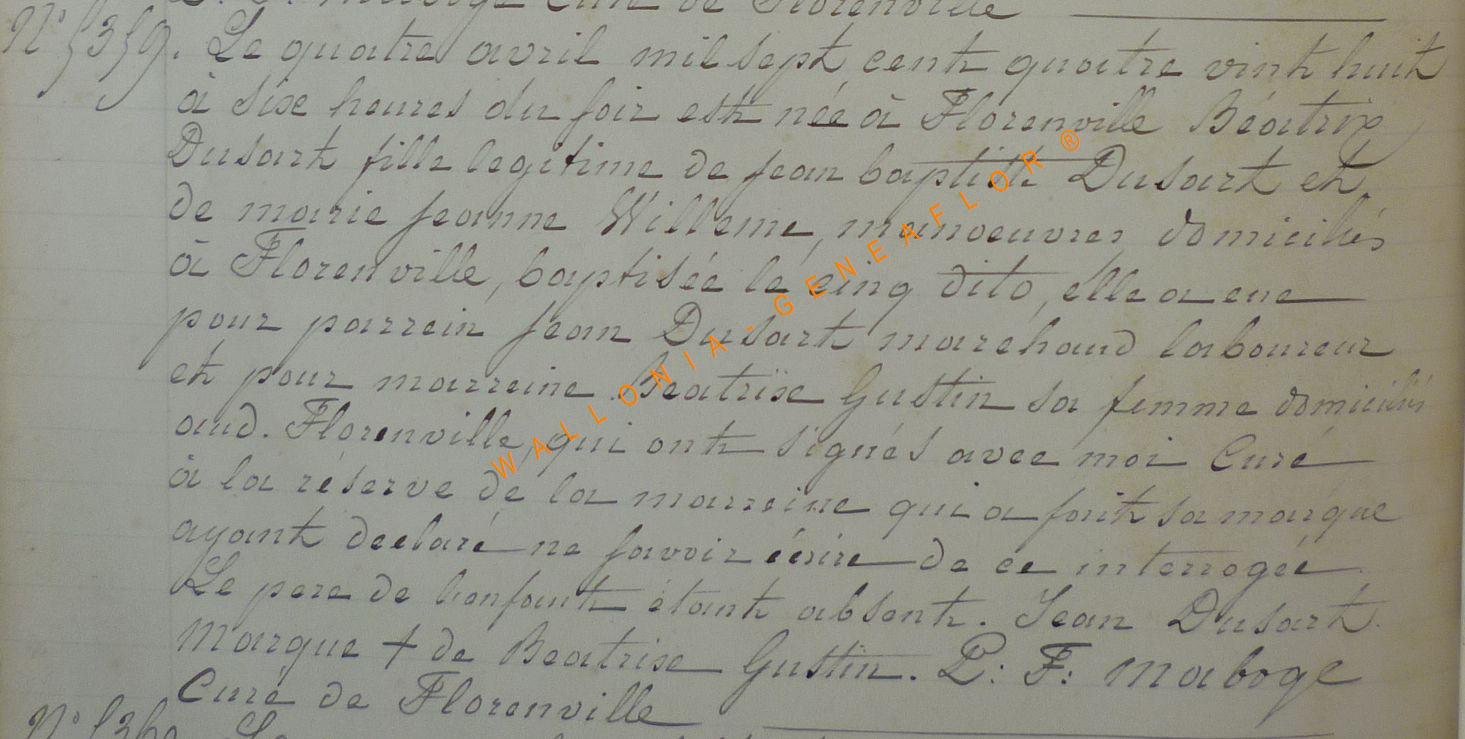 P. F. Maboge Curé de Florenville
N° 5359. Le quatre avril mil sept cent quatre vint huit
à six heures du soir est née à Florenville Béatrix
Dusart fille legitime de jean baptiste Dusart et
de marie jeanne Willeme, manoeuvres domiciliés
à Florenville, baptisée le cinq dito, elle a eue
pour parrein jean Dusart marchand laboureur
et pour marreine Beatrise Gustin sa femme domiciliés
aud. Florenville, qui ont signés avec moi Curé
à la réserve de la marreine qui a fait sa marque
ayant declaré ne savoir écrire de ce interrogée.
Le pere de l'enfant étant absent. Jean Dusart.
Marque + de Beatrise Gustin. P: F: Maboge
Curé de Florenville
N° 5360 Le
WALLONIA - GENEAFLOR ®